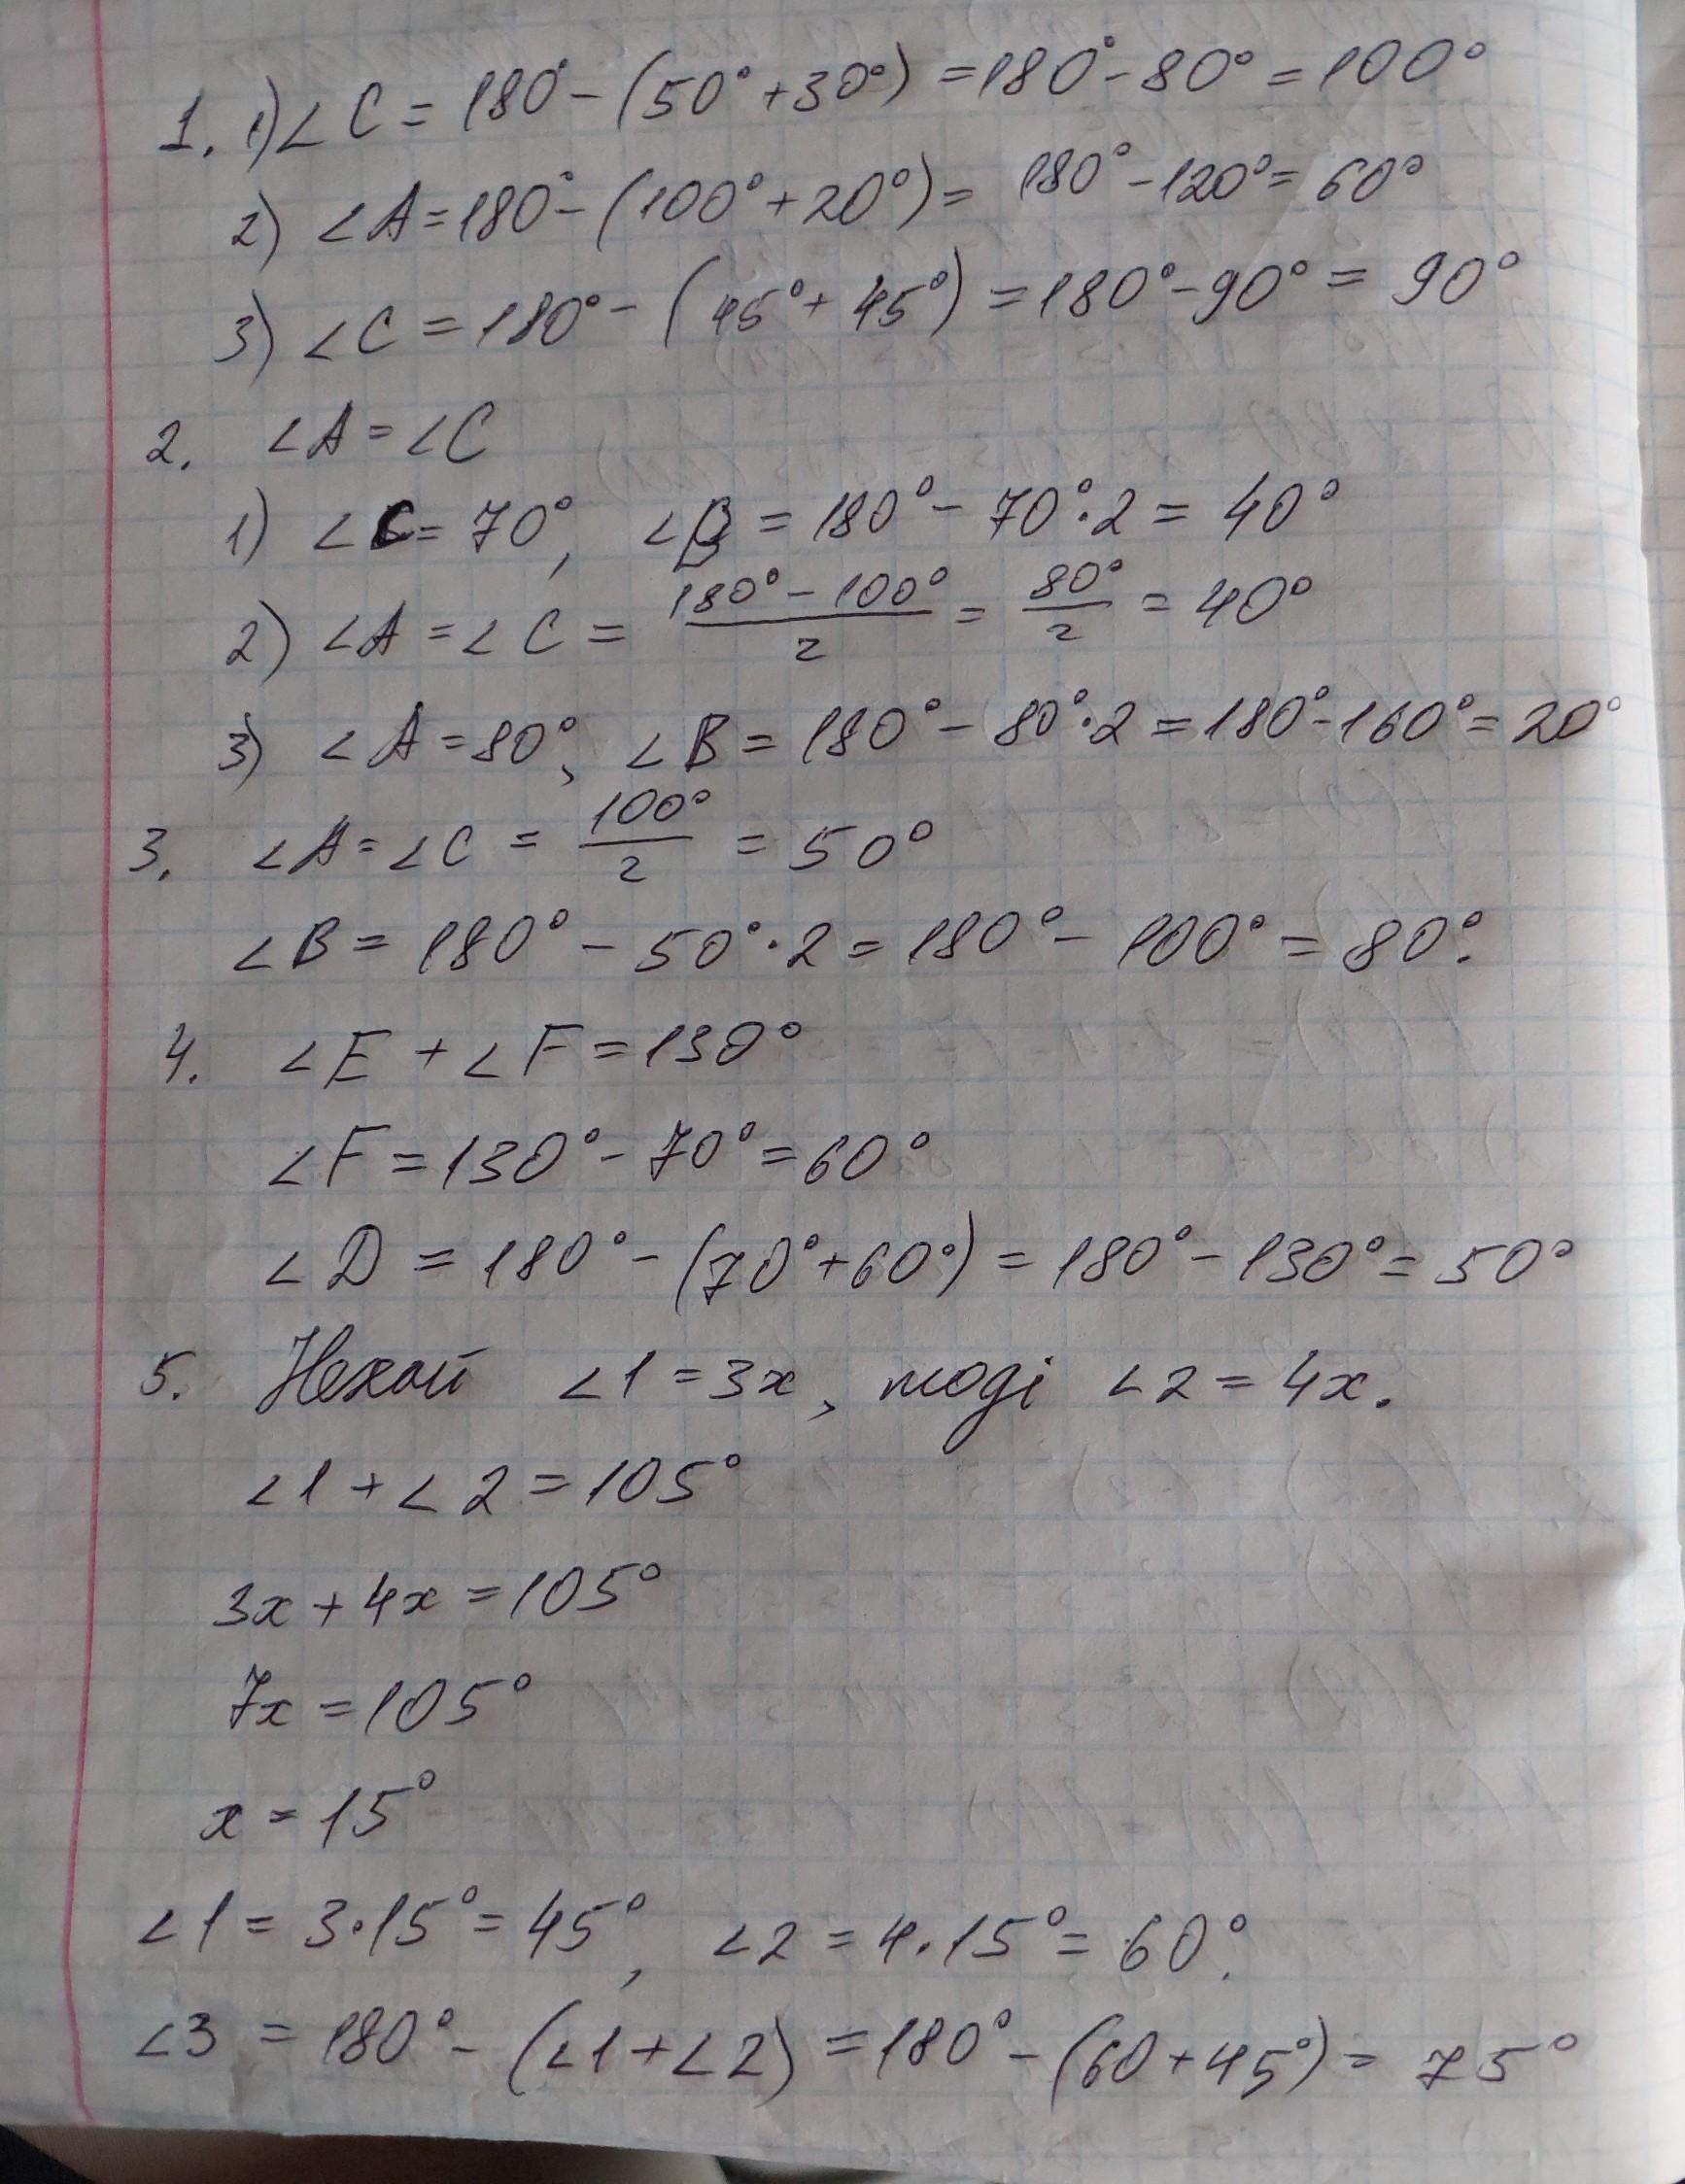 1. 1) ∠C = 180° - (50° + 30°) = 180° - 80° = 100°
2) ∠A = 180° - (100° + 20°) = 180° - 120° = 60°
3) ∠C = 180° - (45° + 45°) = 180° - 90° = 90°
2. ∠A = ∠C
1) ∠C = 70°, ∠B = 180° - 70° · 2 = 40°
2) ∠A = ∠C = (180° - 100°)/2 = 80°/2 = 40°
3) ∠A = 80°, ∠B = 180° - 80° · 2 = 180° - 160° = 20°
3. ∠A = ∠C = 100°/2 = 50°
∠B = 180° - 50° · 2 = 180° - 100° = 80°.
4. ∠E + ∠F = 130°
∠F = 130° - 70° = 60°
∠D = 180° - (70° + 60°) = 180° - 130° = 50°
5. Нехай ∠1 = 3x, тоді ∠2 = 4x.
∠1 + ∠2 = 105°
3x + 4x = 105°
7x = 105°
x = 15°
∠1 = 3 · 15° = 45°, ∠2 = 4 · 15° = 60°.
∠3 = 180° - (∠1 + ∠2) = 180° - (60 + 45°) = 75°